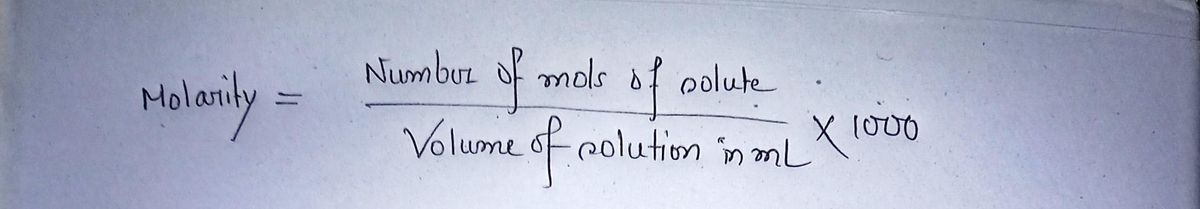 Molarity = Number of mols of solute
Volume of solution in mL X 1000